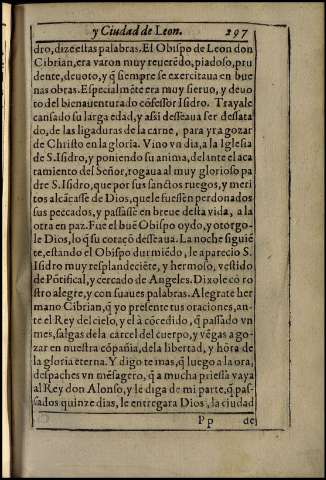 y Ciudad de Leon. 297
dro, dize estas palabras. El Obispo de Leon don
Cibrian, era varon muy reuerẽdo, piadoso, pru
dente, deuoto, y q̃ siempre se exercitaua en bue
nas obras. Especialmẽte era muy sieruo, y deuo
to del bienauenturado cõfessor Isidro. Trayale
cansado su larga edad, y assi desseaua ser desata
do, de las ligaduras de la carne, para yr a gozar
de Christo en la gloria. Vino vn dia, a la Iglesia
de S. Isidro, y poniendo su anima, delante el aca
tamiento del Señor, rogaua al muy glorioso pa
dre S. Isidro, que por sus sanctos ruegos, y meri
tos alcãcasse de Dios, que le fuessen perdonados
sus peccados, y passasse en breue desta vida, a la
otra en paz. Fue el buẽ Obispo oydo, y otorgo-
le Dios, lo q̃ su coraçõ desseaua. La noche siguiẽ
te, estando el Obispo durmiẽdo, le aparecio S.
Isidro muy resplandeciẽte, y hermoso, vestido
de Põtifical, y cercado de Angeles. Dixole cõ ro
stro alegre, y con suaues palabras. Alegrate her
mano Cibrian, q̃ yo presente tus oraciones, an-
te el Rey del cielo, y el à cõcedido, q̃ passado vn
mes, salgas de la carcel del cuerpo, y vẽgas a go-
zar en nuestra cõpañia, de la libertad, y hõra de
la gloria eterna. Y digo te mas, q̃ luego a la ora,
despaches vn mẽsagero, q̃ a mucha priessa vaya
al Rey don Alonso, y le diga de mi parte, q̃ pas-
sados quinze dias, le entregara Dios, la ciudad
P p de